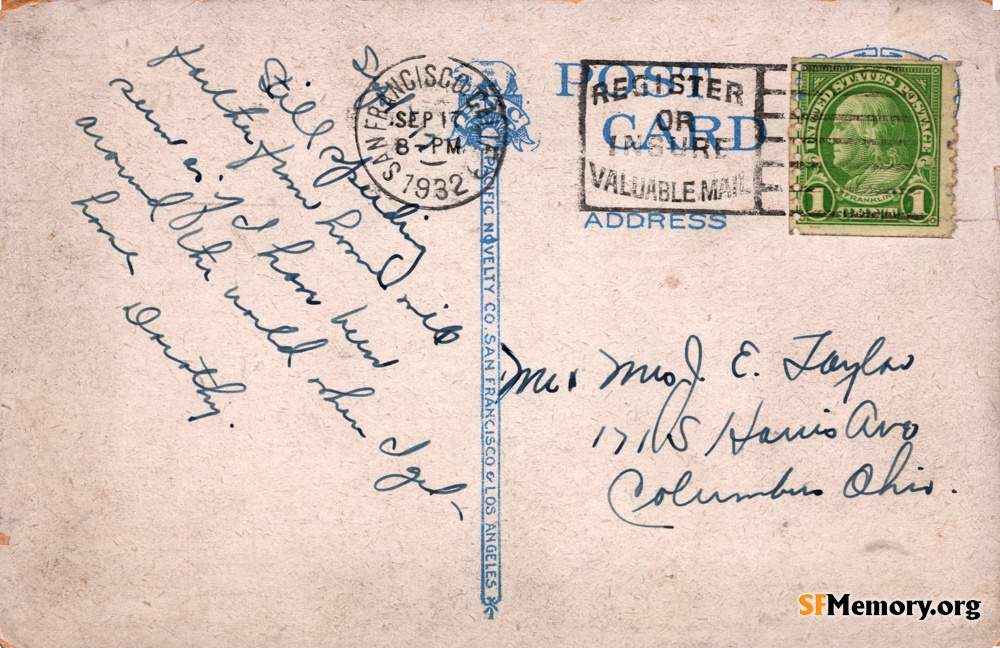 Still speeding
farther from home will
seem as if I have been
around the world when I get
home
Dorothy.
SAN FRANCISCO, CALIF.
SEP 17
8-PM
1932
REGISTER
OR
INSURE
VALUABLE MAIL
POST
CARD
ADDRESS
UNITED STATES POSTAGE
FRANKLIN
1 1
PACIFIC NOVELTY CO. SAN FRANCISCO & LOS ANGELES
Mr & Mrs J. E. Taylor
1715 Harris Ave
Columbus Ohio.
SFMemory.org